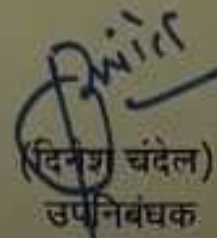 (दिनेश चंदेल)
उपनिबंधक